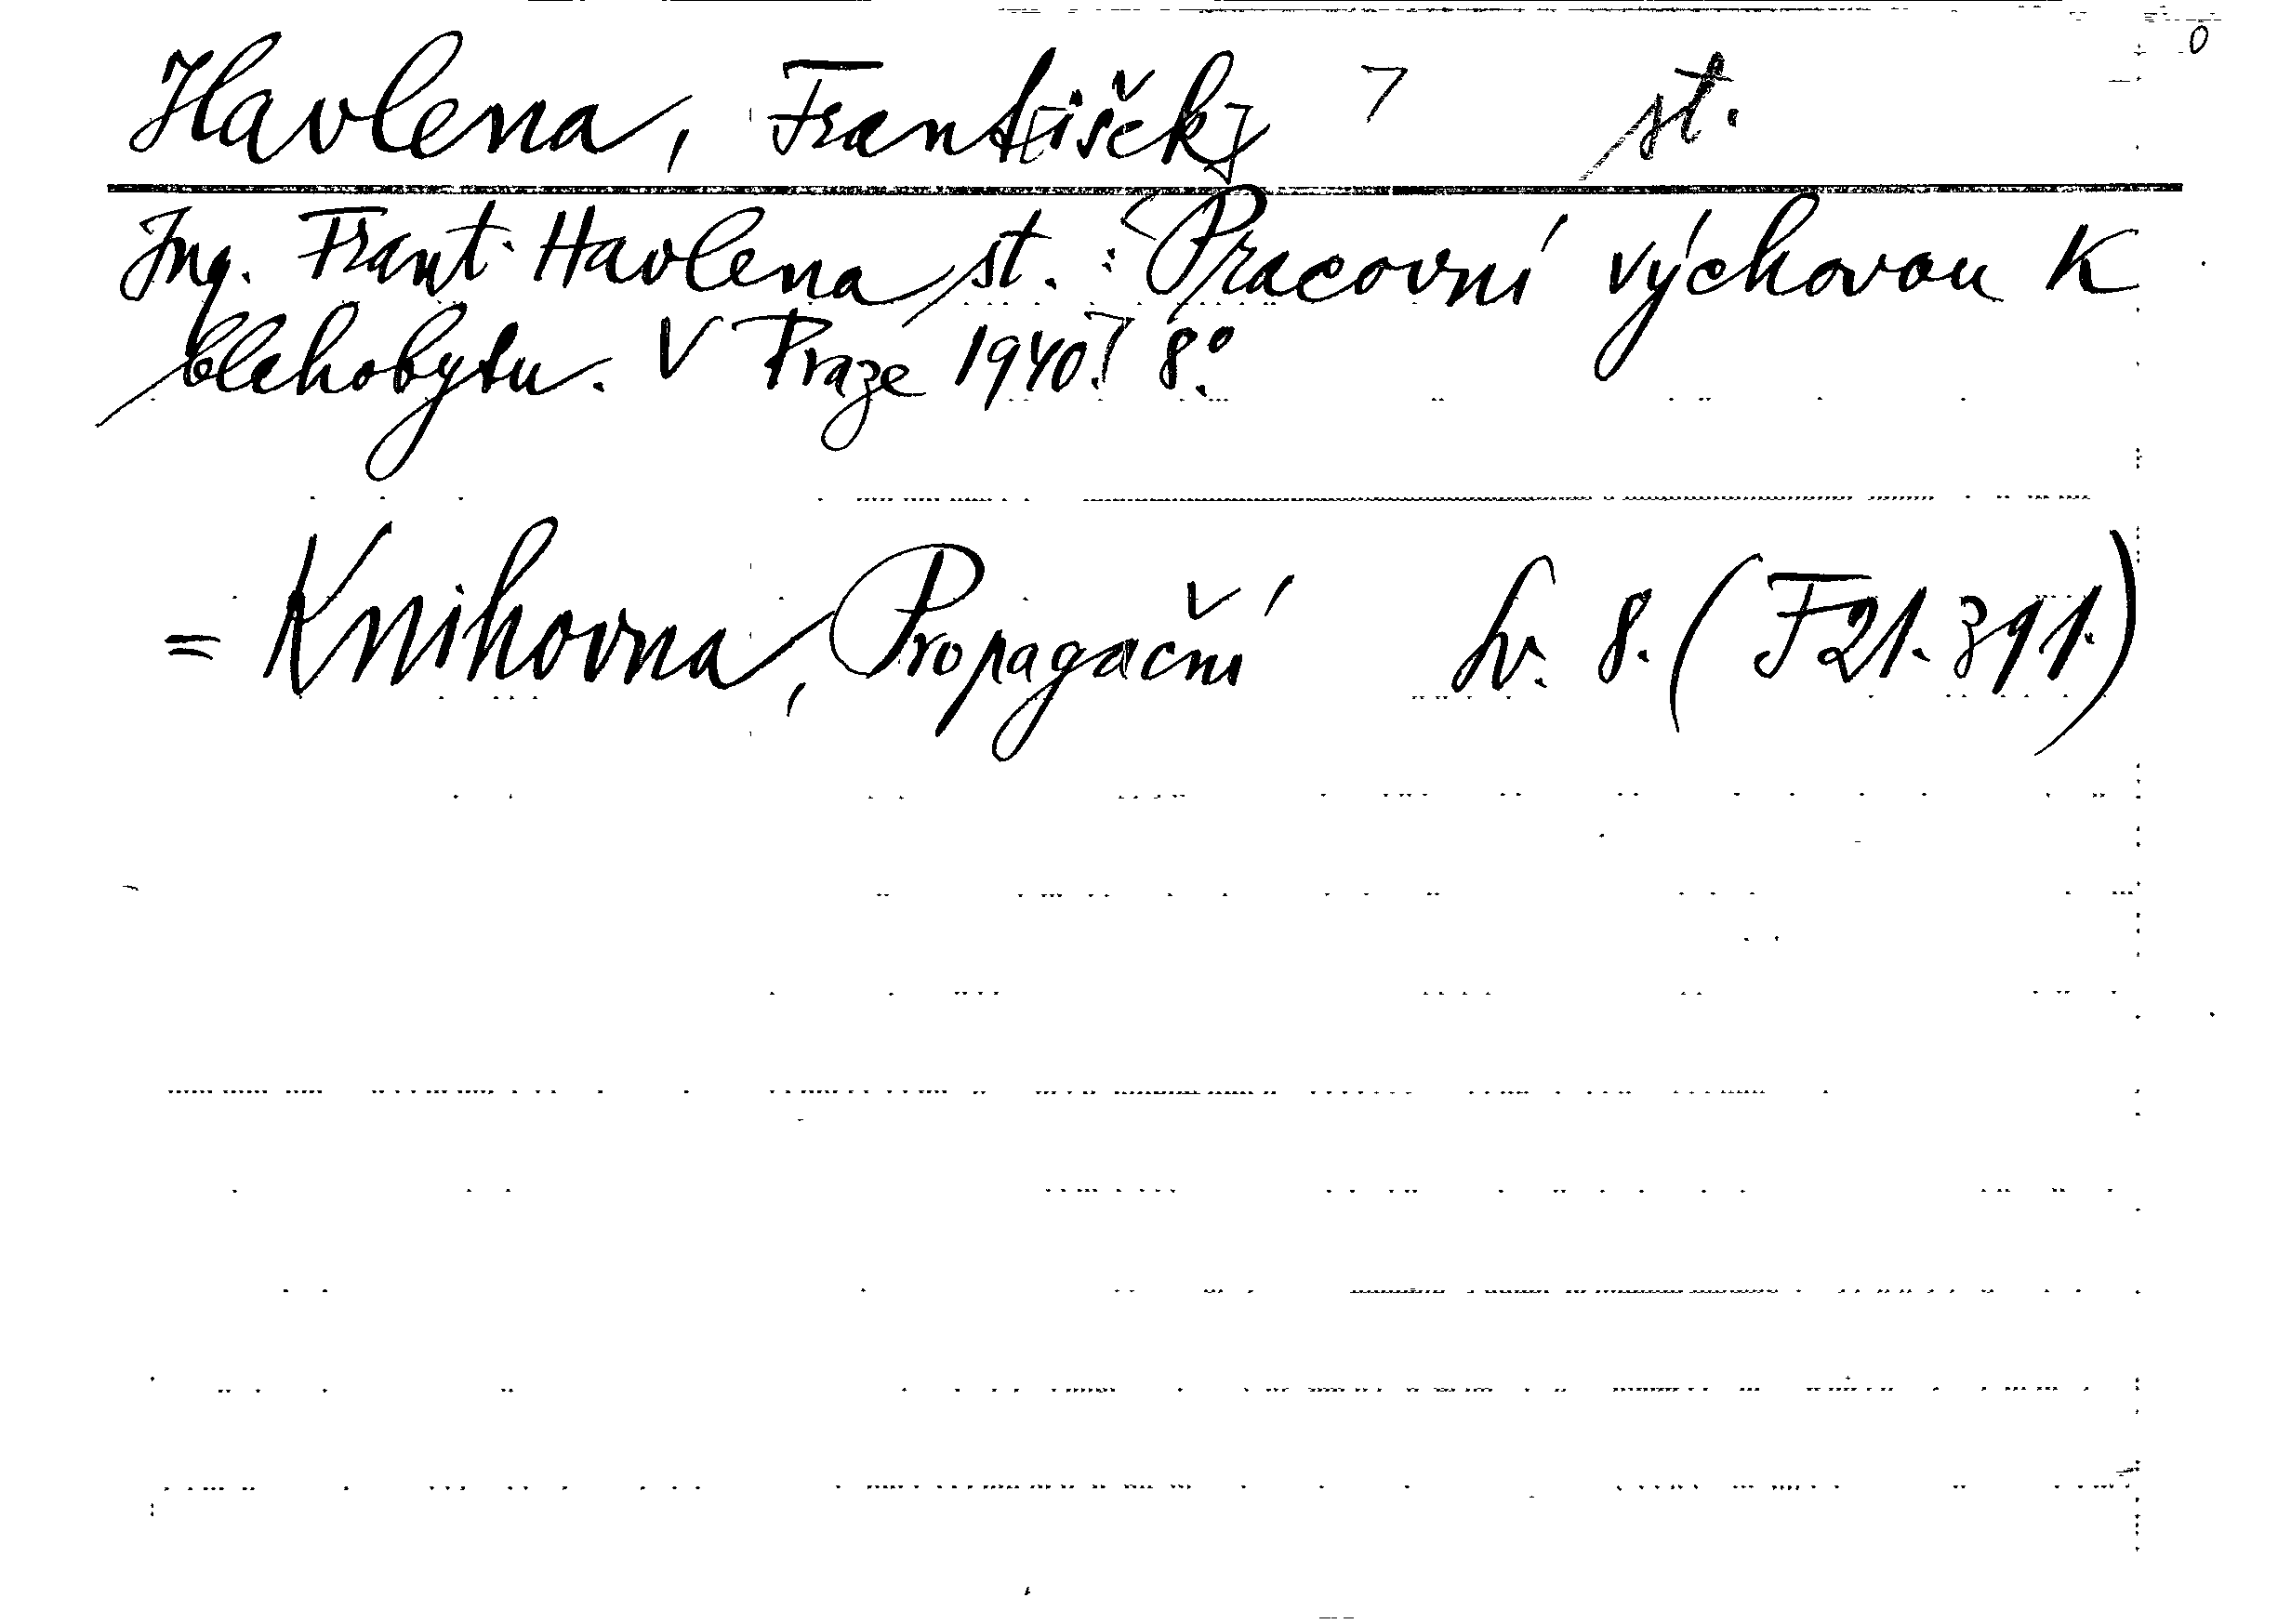 Havlena, Frant[išek] st.
Ing. Frant. Havlena st.: Pracovní výchovou k
blahobytu. V Praze 1940. 8°.
= Knihovna, Propagační sv. 8. (F 21.391.)